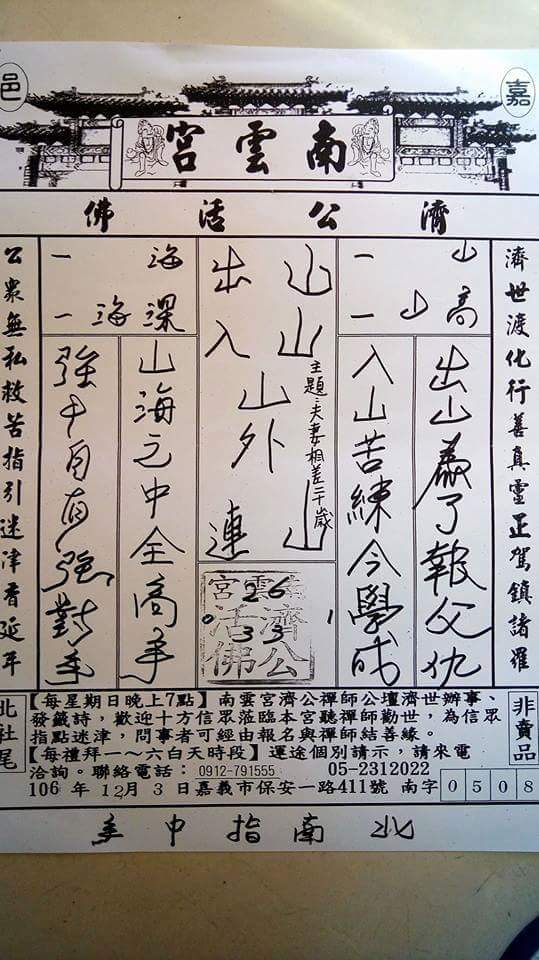 嘉邑
南雲宮
濟公活佛
濟世渡化行善真靈正駕鎮諸羅
山一
高山一
出山為了報父仇
入山苦練今學成
山山山
主題:夫妻相差二十歲
出入山外連
26
0 33 1
南雲宮濟公活佛
海一
深海一
山海之中全高手
強中自有強對手
公眾無私救苦指引迷津香延年
北社尾
【每星期日晚上7點】南雲宮濟公禪師公壇濟世辦事、
發籤詩,歡迎十方信眾蒞臨本宮聽禪師勸世,為信眾
指點迷津,問事者可經由報名與禪師結善緣。
【每禮拜一~六白天時段】運途個別請示,請來電
洽詢。聯絡電話:0912-791555 05-2312022
106 年 12 月 3 日嘉義市保安一路411號 南字 0508
非賣品
北南指中手